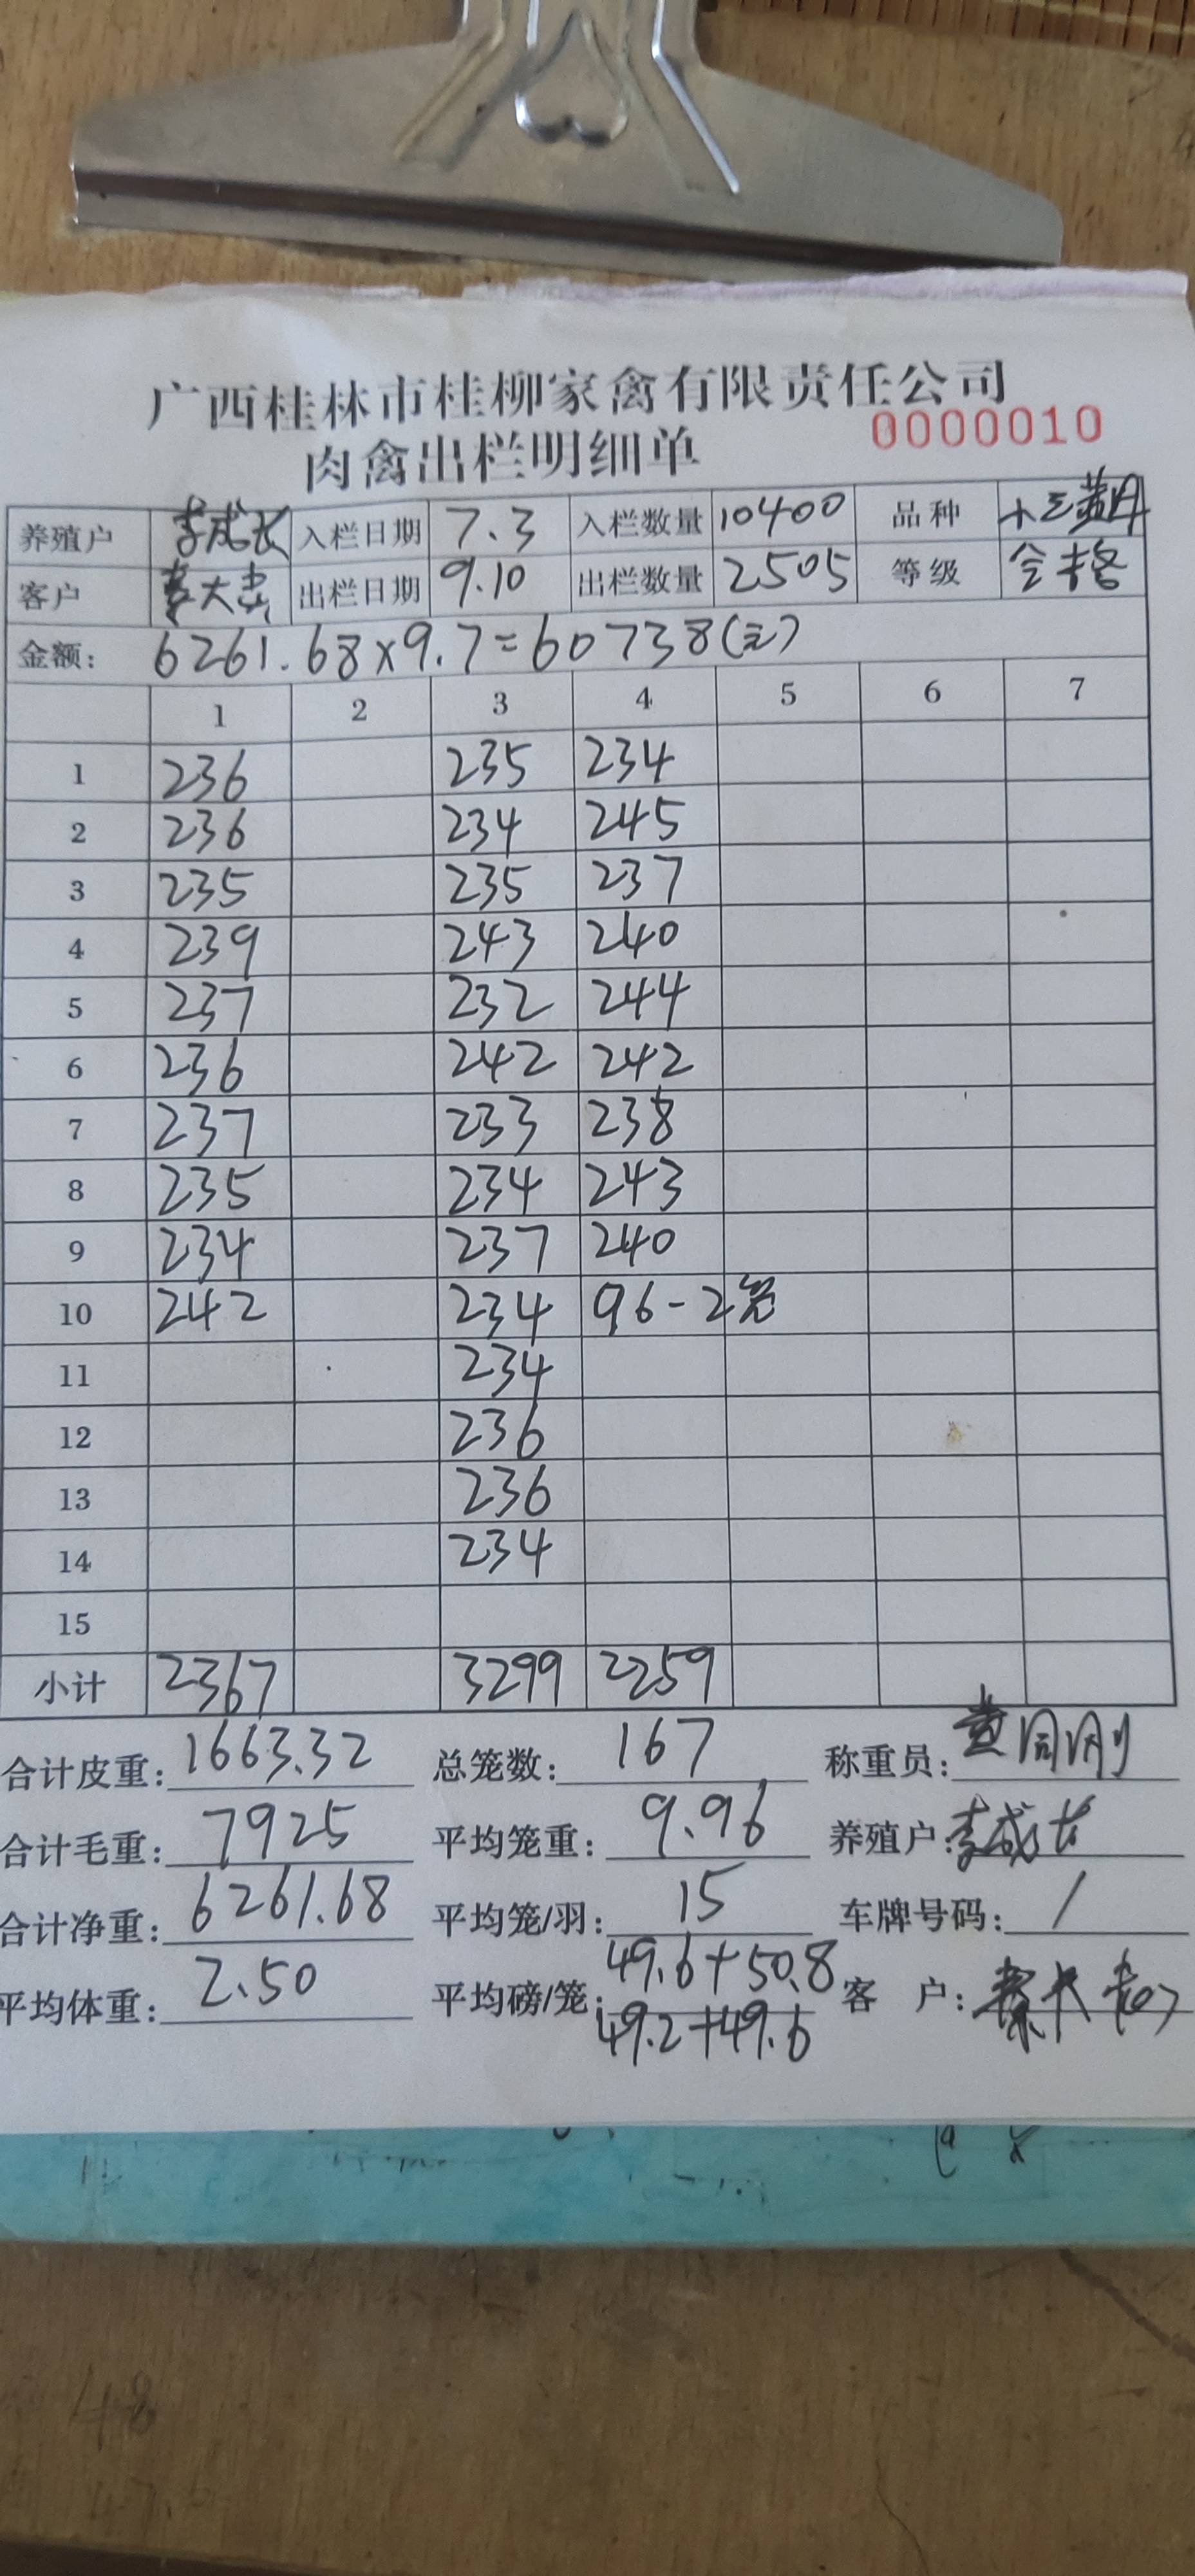 广西桂林市桂柳家禽有限责任公司
肉禽出栏明细单 0000010
养殖户 李成长 入栏日期 7.3 入栏数量 10400 品种
客户 出栏日期 9.10 出栏数量 2505 等级 合格
金额: 6261.68×9.7=60738(元)
1 2 3 4 5 6 7
1 236 235 234
2 236 234 245
3 235 235 237
4 239 243 240
5 237 232 244
6 236 242 242
7 237 233 238
8 235 234 243
9 234 237 240
10 242 234 96-2笼
11 234
12 236
13 236
14 234
15
小计 2367 3299 2259
合计皮重: 1663.32 总笼数: 167 称重员:
合计毛重: 7925 平均笼重: 9.96 养殖户: 李成长
合计净重: 6261.68 平均笼/羽: 15 车牌号码: /
平均体重: 2.50 平均磅/笼: 49.6+50.8 客 户:
49.2+49.6